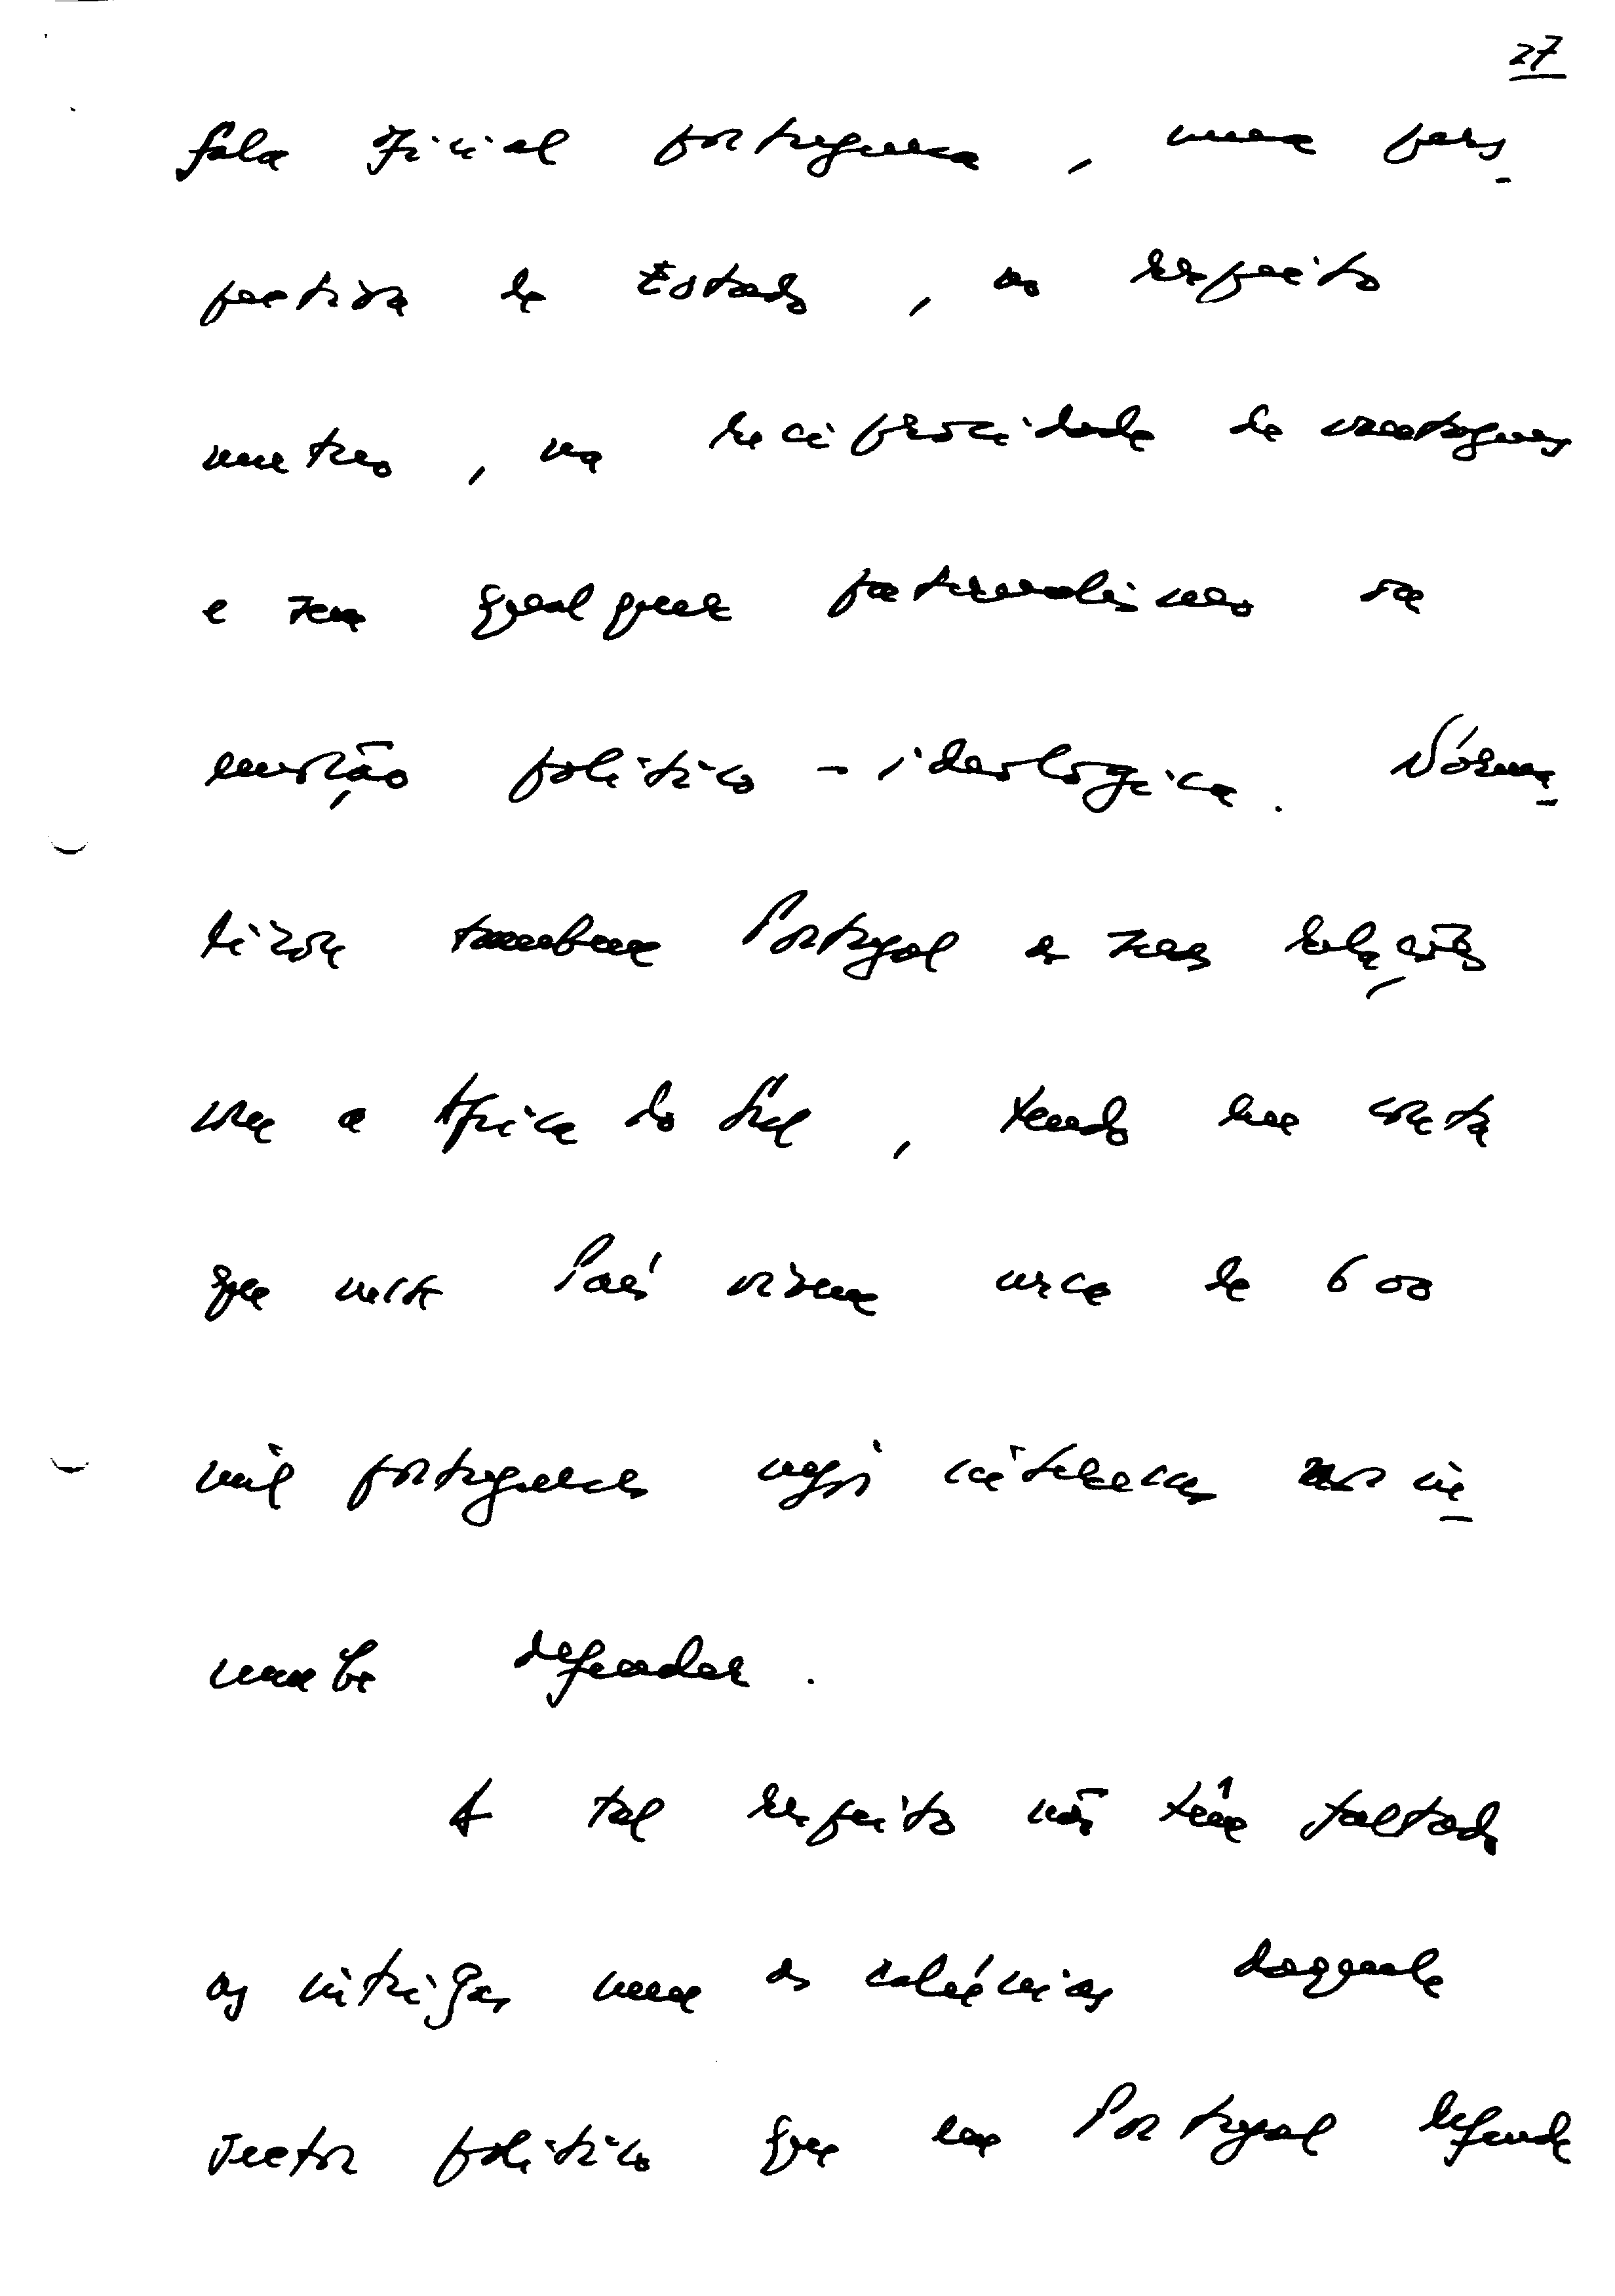 27
fala oficial portuguesa, numa pers-
pectiva de Estado, no respeito
mutuo, na reciprocidade de vantagens
e sem qualquer paternalismo ou
emoção politico-ideologica. Norma-
lizou tambem Portugal as suas relações
com a Africa do Sul, tendo em conta
que neste País vivem cerca de 600
mil portugueses cujos interesses nos in-
cumbe defender.
A tal respeito não têm faltado
as intrigas nem as calúnias daquele
sector politico que em Portugal defende